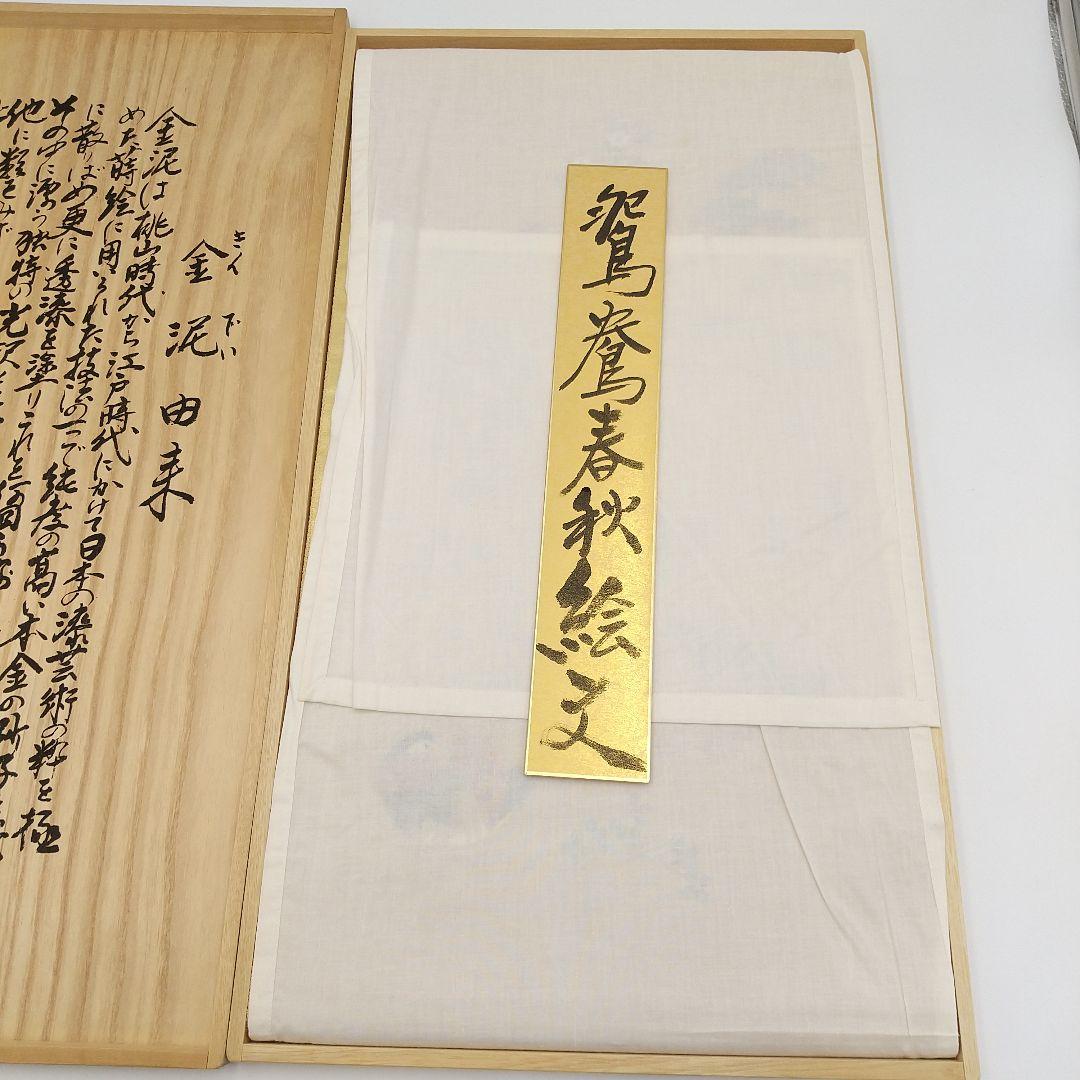 金泥由来
きん でい
金泥は桃山時代から江戸時代にかけて日本の漆芸術の粋を極
めた蒔絵に用いられた技法の一つで純度の高い本金の砂子を
に散りばめ更に透漆を塗りこれを
その中に漂う独特の光沢
他に類をみず
鴛鴦春秋絵文